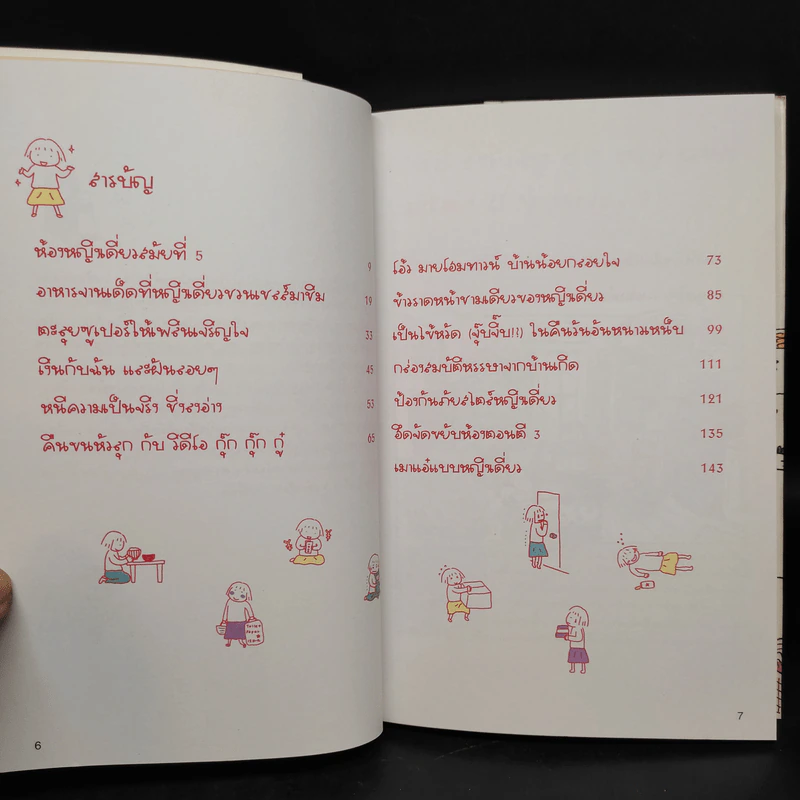 สารบัญ
ห้องหญิงเดี่ยวสมัยที่ 5 9
อาหารจานเด็ดที่หญิงเดี่ยวชวนเชลล์มาชิม 19
ตะลุยซูเปอร์ให้เพลินเจริญใจ 33
เงินกับฉัน และฝันลอยๆ 45
หนีความเป็นจริง ชิ่งลงอ่าง 53
คืนขนหัวลุก กับ วิดีโอ กุ๊ก กุ๊ก กู๋ 65
6
โอ้ว มายโฮมทาวน์ บ้านน้อยกลอยใจ 73
ข้าวราดหน้าชามเดียวของหญิงเดี่ยว 85
เป็นไข้หวัด (จุ๊บจิ๊บ!!?) ในคืนวันอันหนาวเหน็บ 99
กล่องสมบัติหรรษาจากบ้านเกิด 111
ป้องกันภัยสไตล์หญิงเดี่ยว 121
ฮึดจัดขยับห้องตอนตี 3 135
เมาแอ๋แบบหญิงเดี่ยว 143
7